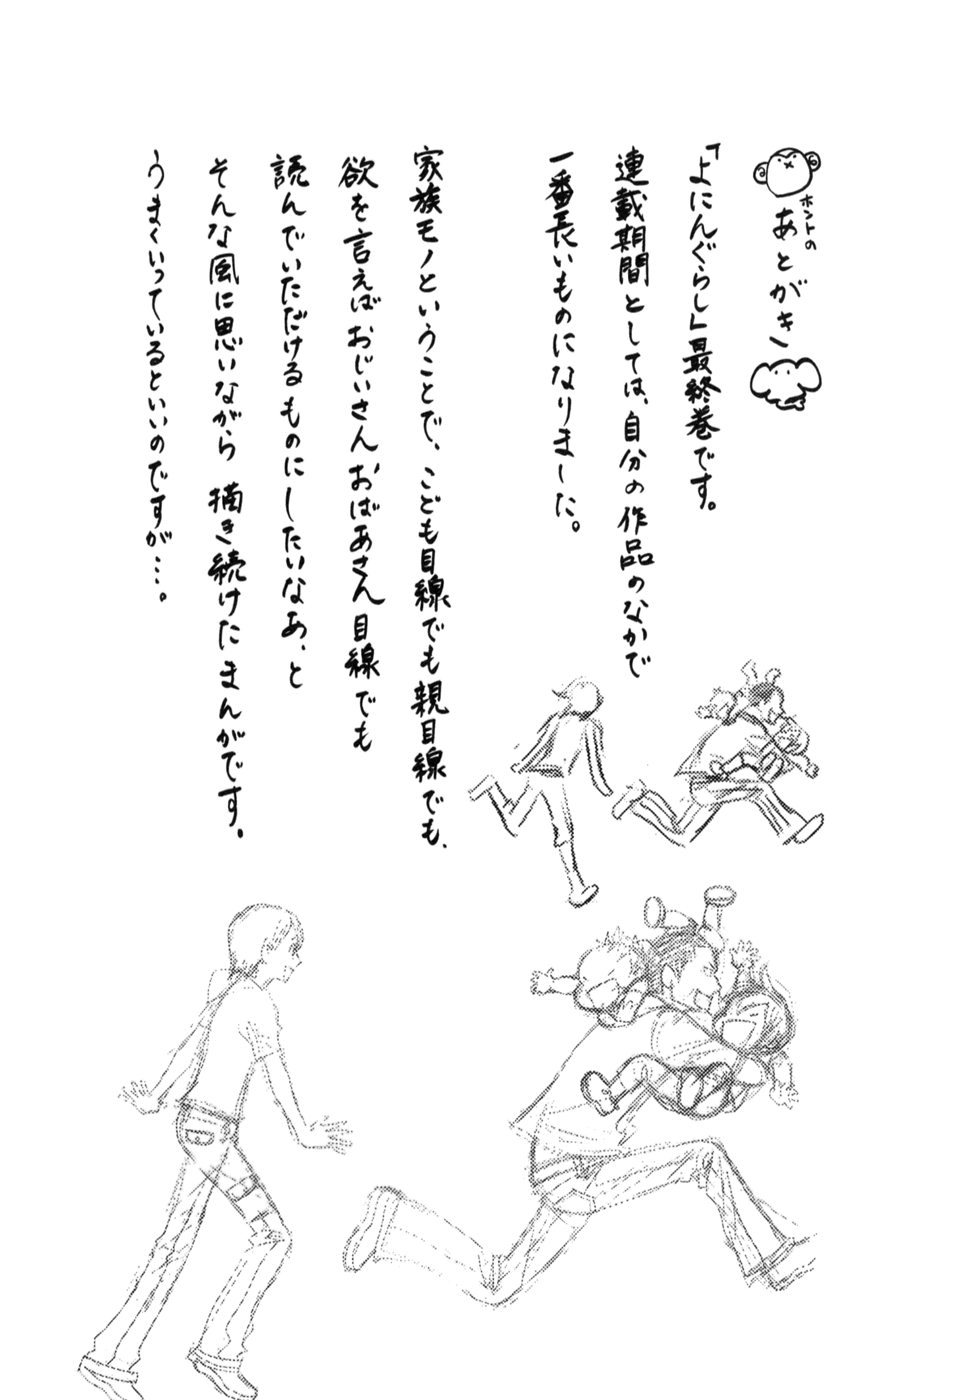 ホントの
あとがき
「よにんぐらし」最終巻です。
連載期間としては、自分の作品のなかで
一番長いものになりました。
家族モノということで、こども目線でも親目線でも、
欲を言えばおじいさんおばあさん目線でも
読んでいただけるものにしたいなあ、と
そんな風に思いながら描き続けたまんがです。
うまくいっているといいのですが…。